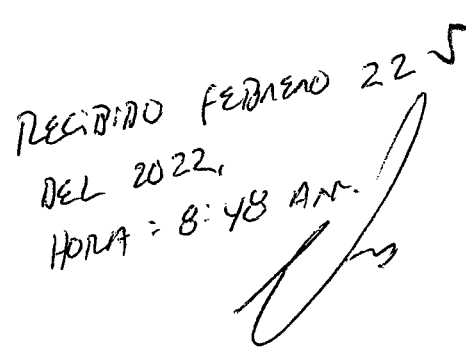 RECIBIDO FEBRERO 22
DEL 2022,
HORA: 8:48 AM.